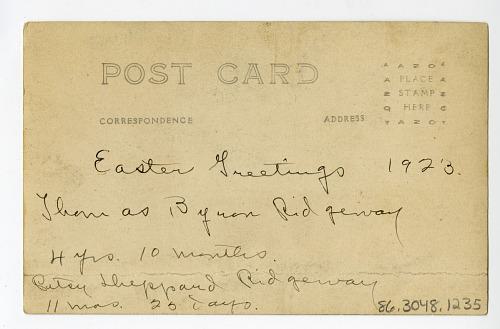 POST CARD
CORRESPONDENCE
ADDRESS
AZO
PLACE
STAMP
HERE
AZO
Easter Greetings 1923.
Thomas Byron Ridgeway
4 yrs. 10 months.
Betsy Sheppard Ridgeway
11 mos. 23 days.
86.3048.1235